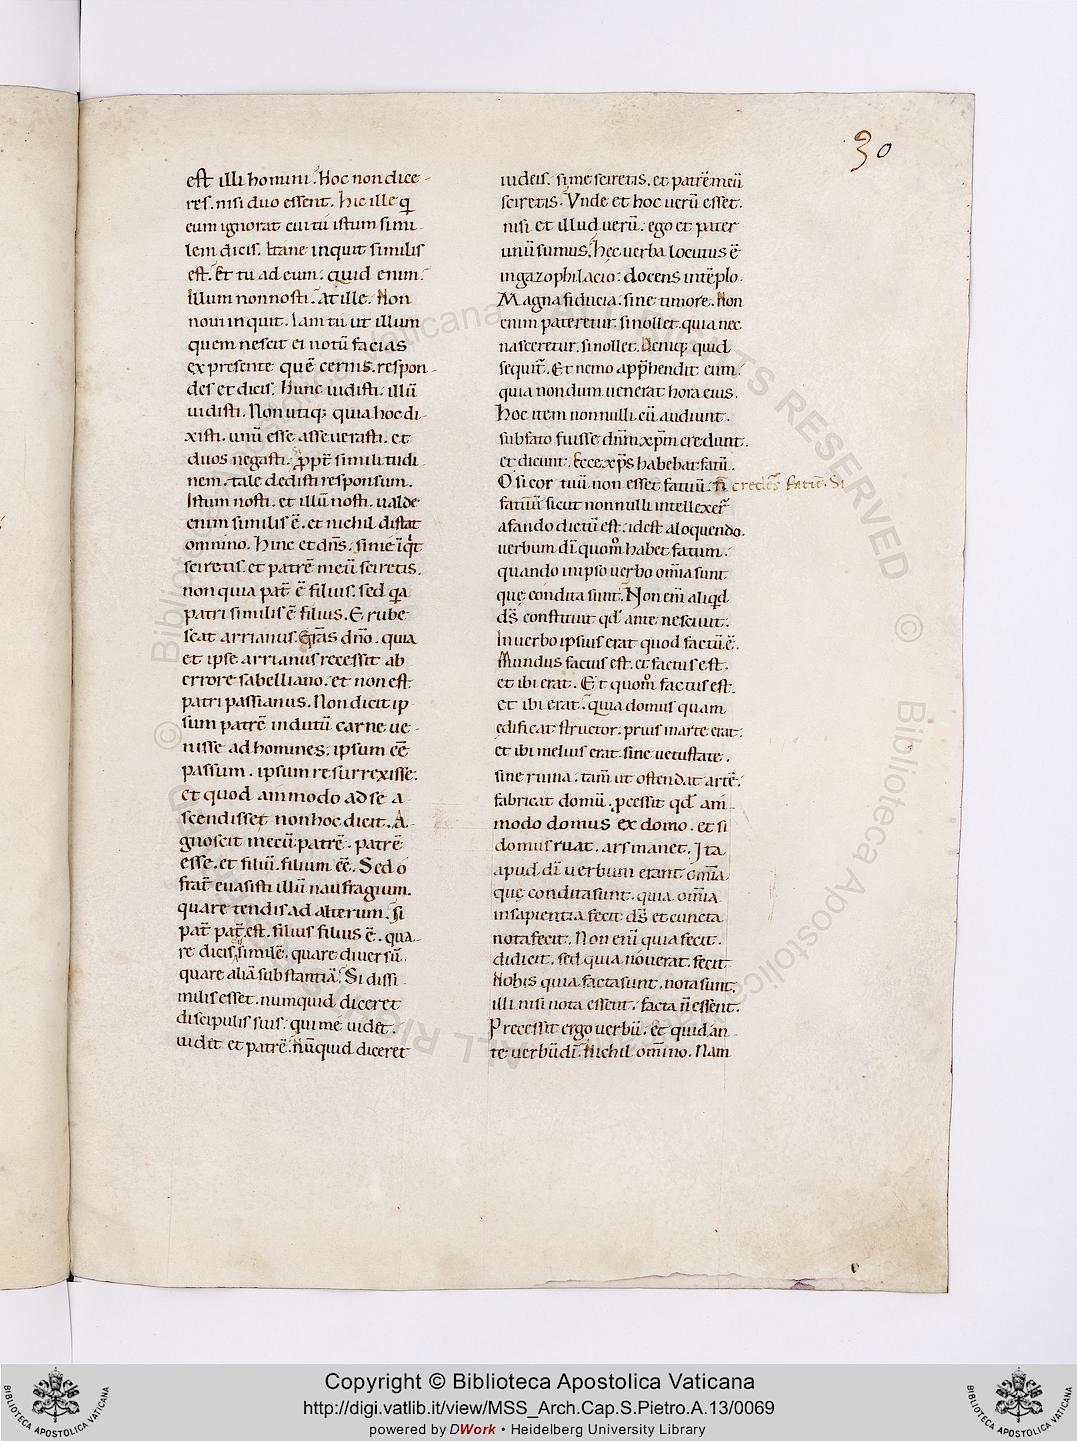 30
est illi homini. Hoc non dice-
res. nisi duo essent. Hic ille q
eum ignorat cui tu istum simi-
lem dicis. Itane inquit similis
est. Et tu ad eum. quid enim.
Illum non nosti. At ille. Non
noui inquit. Iam tu ut illum
quem nescit ei notū facias
ex presente quē cernis. respon-
des et dicis. Hunc uidisti. illū
uidisti. Non utiq; quia hoc di-
xisti. unū esse asseuerasti. et
duos negasti. ꝓpt̄ similitudi-
nem. tale dedisti responsum.
Istum nosti. et illū nosti. ualde
enim similis ē. et nichil distat
omnino. Hinc et dn̄s. si me īq̇t
sciretis. et patrē meū sciretis.
non quia pat̄ ē filius. sed q̇a
patri similis ē filius. Erube-
scat arrianus. Gr̄as dn̄o. quia
et ipse arrianus recessit ab
errore sabelliano. et non est
patripassianus. Non dicit ip-
sum patrē indutū carne ue-
nisse ad homines. ipsum eē
passum. ipsum resurrexisse.
et quod ammodo ad se a-
scendisset non hoc dicit. A-
gnoscit mecū patrē. patrē
esse. et filiū. filium eē. Sed o
frat̄ euasisti illū naufragium.
quare tendis ad alterum. si
pat̄ pat̄ est. filius filius ē. qua-
re dicis similē. quare diuersū.
quare aliā substantiā. Si dissi-
milis esset. numquid diceret
discipulis suis. qui me uidet.
uidet et patrē. nūquid diceret
iudeis. si me sciretis. et patrē meū
sciretis. Vnde et hoc uerū esset.
nisi et illud uerū. ego et pater
unū sumus. hec uerba locutus ē
in gazophilacio. docens in tēplo.
Magna fiducia. sine timore. Non
enim pateretur. si nollet. quia nec
nasceretur. si nollet. Deniq; quid
sequit̄. Et nemo app̄hendit eum.
quia nondum uenerat hora eius.
Hoc item nonnulli cū audiunt.
sub fato fuisse dn̄m xp̄m credunt.
et dicunt. Ecce xp̄s habebat fatū.
O si cor tuū non esset fatuū. n̄ crederes fatū. Si
fatū sicut nonnulli intellexer̄
a fando dictū est. id est a loquendo.
uerbum dī quom̊ habet fatum.
quando in ipso uerbo om̄ia sunt
quę condita sunt. Non enī aliq̇d
ds̄ constituit qd̄ ante nesciuit.
In uerbo ipsius erat quod factū ē.
Mundus factus est. et factus est.
et ibi erat. Et quom̊ factus est.
et ibi erat. quia domus quam
edificat structor. prius in arte erat.
et ibi melius erat. sine uetustate.
sine ruina. tam̄ ut ostendat artē.
fabricat domū. ꝓcessit qd̄ am-
modo domus ex domo. et si
domus ruat. ars manet. Ita
apud dī uerbum erant om̄ia
quę condita sunt. quia om̄ia
in sapientia fecit ds̄. et cuncta
nota fecit. Non enī quia fecit.
didicit. sed quia nouerat. fecit.
Nobis quia facta sunt. nota sunt.
illi nisi nota essent. facta n̄ essent.
Precessit ergo uerbū. Et quid an-
te uerbū dī. Nichil om̄ino. Nam
© Biblioteca Apostolica Vaticana ALL RIGHTS RESERVED © Biblioteca Apostolica Vaticana ALL RIGHTS RESERVED
BIBLIOTECA APOSTOLICA VATICANA
Copyright © Biblioteca Apostolica Vaticana
http://digi.vatlib.it/view/MSS_Arch.Cap.S.Pietro.A.13/0069
powered by DWork • Heidelberg University Library
BIBLIOTECA APOSTOLICA VATICANA